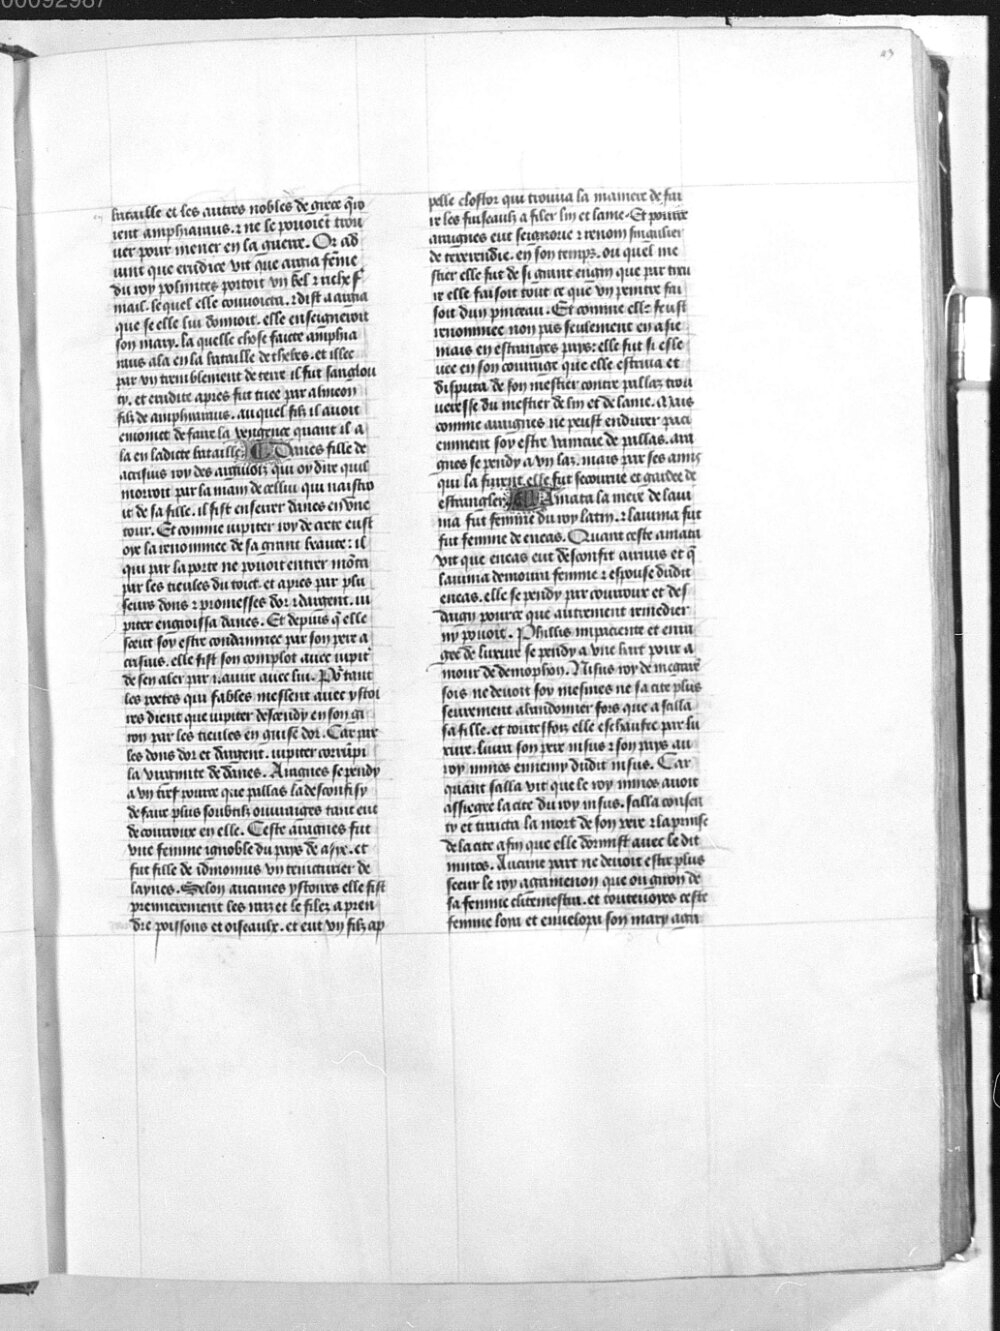 00092987
bataille et les autres nobles de grece q̃ro
ient amphiaraus. ⁊ ne le pouoiẽt trou
uer pour mener en la guerre. Or ad
uint que erudice vit que argia fẽme
du roy polinites portoit vn bel ⁊ riche f
mail. lequel elle couuoita. ⁊ dist a argia
que se elle lui donnoit. elle enseigneroit
son mary. la quelle chose faicte amphia
raus ala en la bataille de thebes. et illec
par vn tremblement de terre il fut sanglou
ty. et erudice apres fut tuee par almeon
filz de amphiaraus. au quel filz il auoit
enioinct de faire la vengence quant il a
la en ladicte bataille. Danes fille de
acrisius roy des argiuois qui oy dire quil
morroit par la main de cellui qui naistro
it de sa fille. il fist enserrer danes en vne
tour. Et comme iupiter roy de crete eust
oye la renommee de sa grant beaute: il
qui par la porte ne pouoit entrer mõta
par les tieules du toict. et apres par plu
seurs dons ⁊ promesses dor ⁊ dargent. iu
piter engroissa danes. Et depuis q̃ elle
sceut soy estre condamnee par son pere a
crisius. elle fist son complot auec iupit'
de sen aler par nauire auec lui. Po' tant
les poetes qui fables meslent auec ystoi
res dient que iupiter descendy en son gi
ron par les tieules en guise dor. Car par
les dons dor et dargent. iupiter corrũpi
la virginite de danes. Aragnes se pendy
a vn tref pource que pallas la desconfisy
de faire plus soubtilz ouuraiges tant eut
de courroux en elle. Ceste aragnes fut
vne femme ignoble du pays de asye. et
fut fille de idmonius vn tainturier de
laynes. Selon aucunes ystoires elle fist
premierement les raiz et le filez a pren
dre poissons et oiseaulx. et eut vn filz ap
pelle closter qui trouua la maniere de fai
re les fuiseaulx a filer lin et laine. Et pource
aragnes eut seigneurie ⁊ renom singulier
de texerendie. en son temps. ou quel me
stier elle fut de si grant engin que par tixu
re elle faisoit tout ce que vn peintre fai
soit dun pinceau. Et comme elle feust
renommee non pas seulement en asie
mais en estranges pays: elle fut si esle
uee en son couraige que elle estriua et
disputa de son mestier contre pallaz trou
ueresse du mestier de lin et de laine. Mais
comme aragnes ne peust endurer paci
emment soy estre vaincue de pallas. ara
gnes se pendy a vn laz. mais par ses amis
qui la furent. elle fut secourue et gardee de
estrangler. Amata la mere de laui
nia fut femme du roy latin. ⁊ lauinia fut
fut femme de eneas. Quant ceste amata
vit que eneas eut desconfit turnus et q̃
lauinia demoura femme ⁊ espouse dudit
eneas. elle se pendy par courroux et des
daing pource que autrement remedier
ny pouoit. Phillis impaciente et enra
gee de luxure se pendy a vne hart pour a
mour de demophon. Nisus roy de megare
sois ne deuoit soy mesmes ne sa cite plus
seurement abandonner fors que a scilla
sa fille. et toutesfois elle eschaufee par lu
xure. liura son pere nisus ⁊ son pays au
roy minos ennemy dudit nisus. Car
quant scilla vit que le roy minos auoit
assiegee la cite du roy nisus. scilla consen
ty et traicta la mort de son pere ⁊ la prinse
de la cite afin que elle dormist auec le dit
minos. Aucune part ne deuoit estre plus
seeur le roy agamenon que ou giron de
sa femme clitemestra. et toutesuoyes ceste
femme loia et enuelopa son mary aga